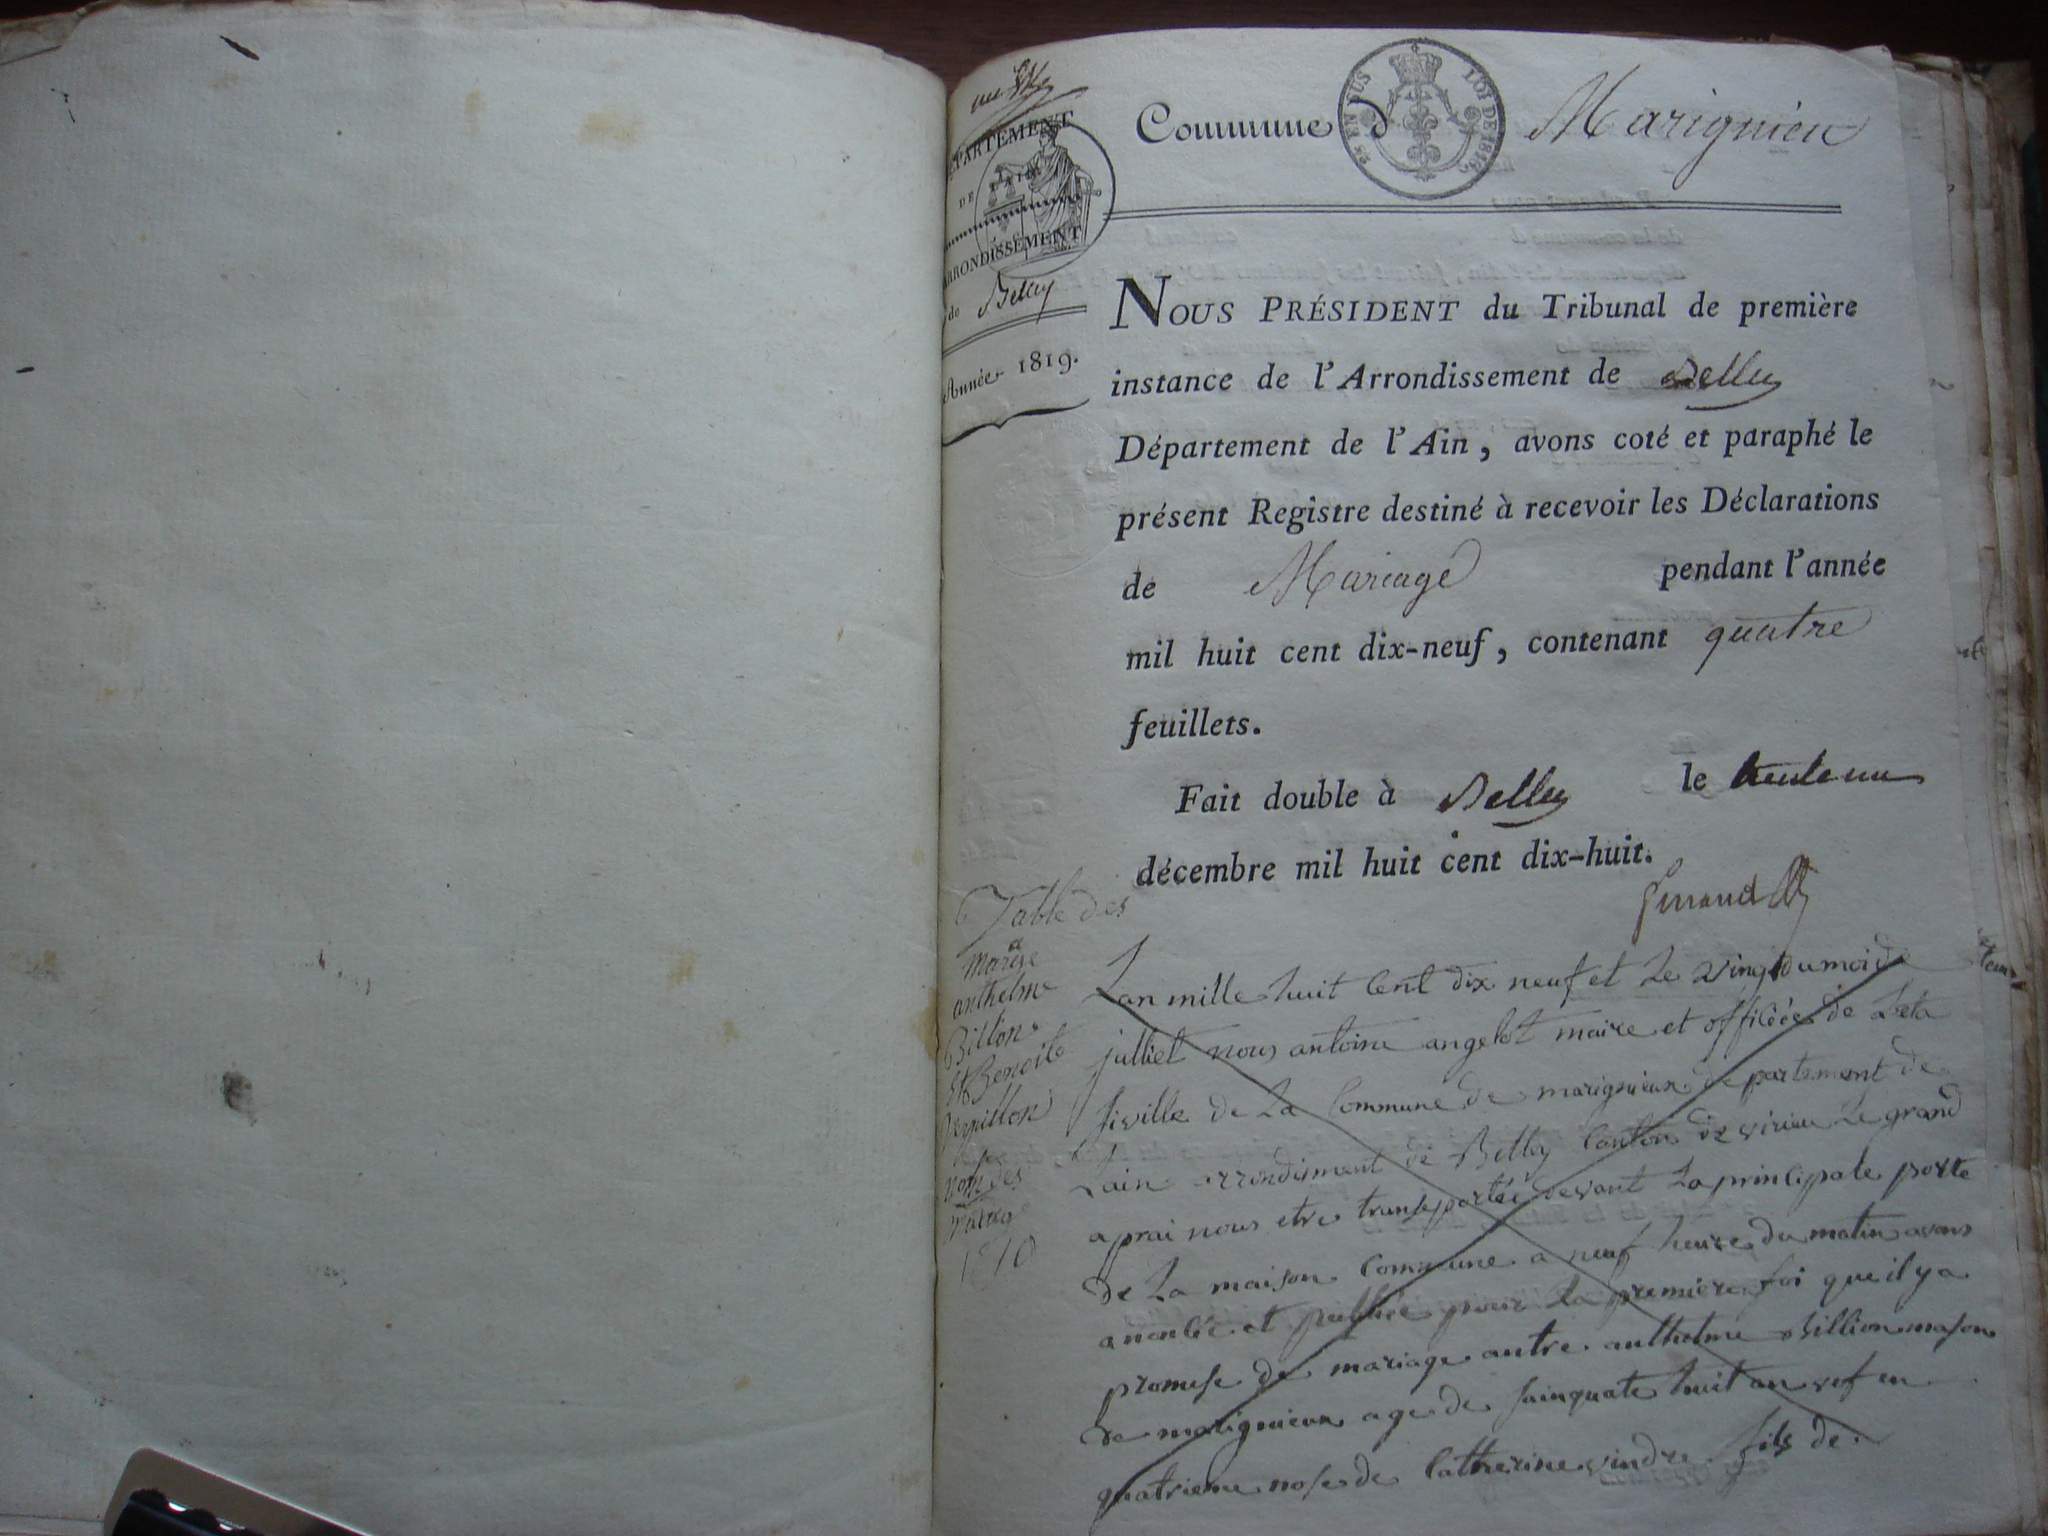 DÉPARTEMENT
DE
ARRONDISSEMENT
de Belley
Année 1819.
Commune d Marignieu
EN SUS
LOI DE 1816.
NOUS PRÉSIDENT du Tribunal de première
instance de l'Arrondissement de Belley
Département de l'Ain, avons coté et paraphé le
présent Registre destiné à recevoir les Déclarations
de Mariage pendant l'année
mil huit cent dix-neuf, contenant quatre
feuillets.
Fait double à Belley le trente un
décembre mil huit cent dix-huit.
Table des
mariage
anthelme
Billion
et Benoite
nom des
1810
Lan mille huit Cent dix neuf et Le vingt du moi de
julliet nous antoine angelot maire et officiée de Léta
siville de La Commune de marignieux departement de
Lain arrondisment de Belley Canton de virieu Le grand
a prai nous etre transeportée devant La principale porte
de La maison Commune a neuf heure du matin avons
anonlée et publiée pour La premiere foi que il y a
promese de mariage antre anthelme Billion mason
de marignieux age de sainquate huit an vef en
quatrieme nose de Catherine vindre fils de